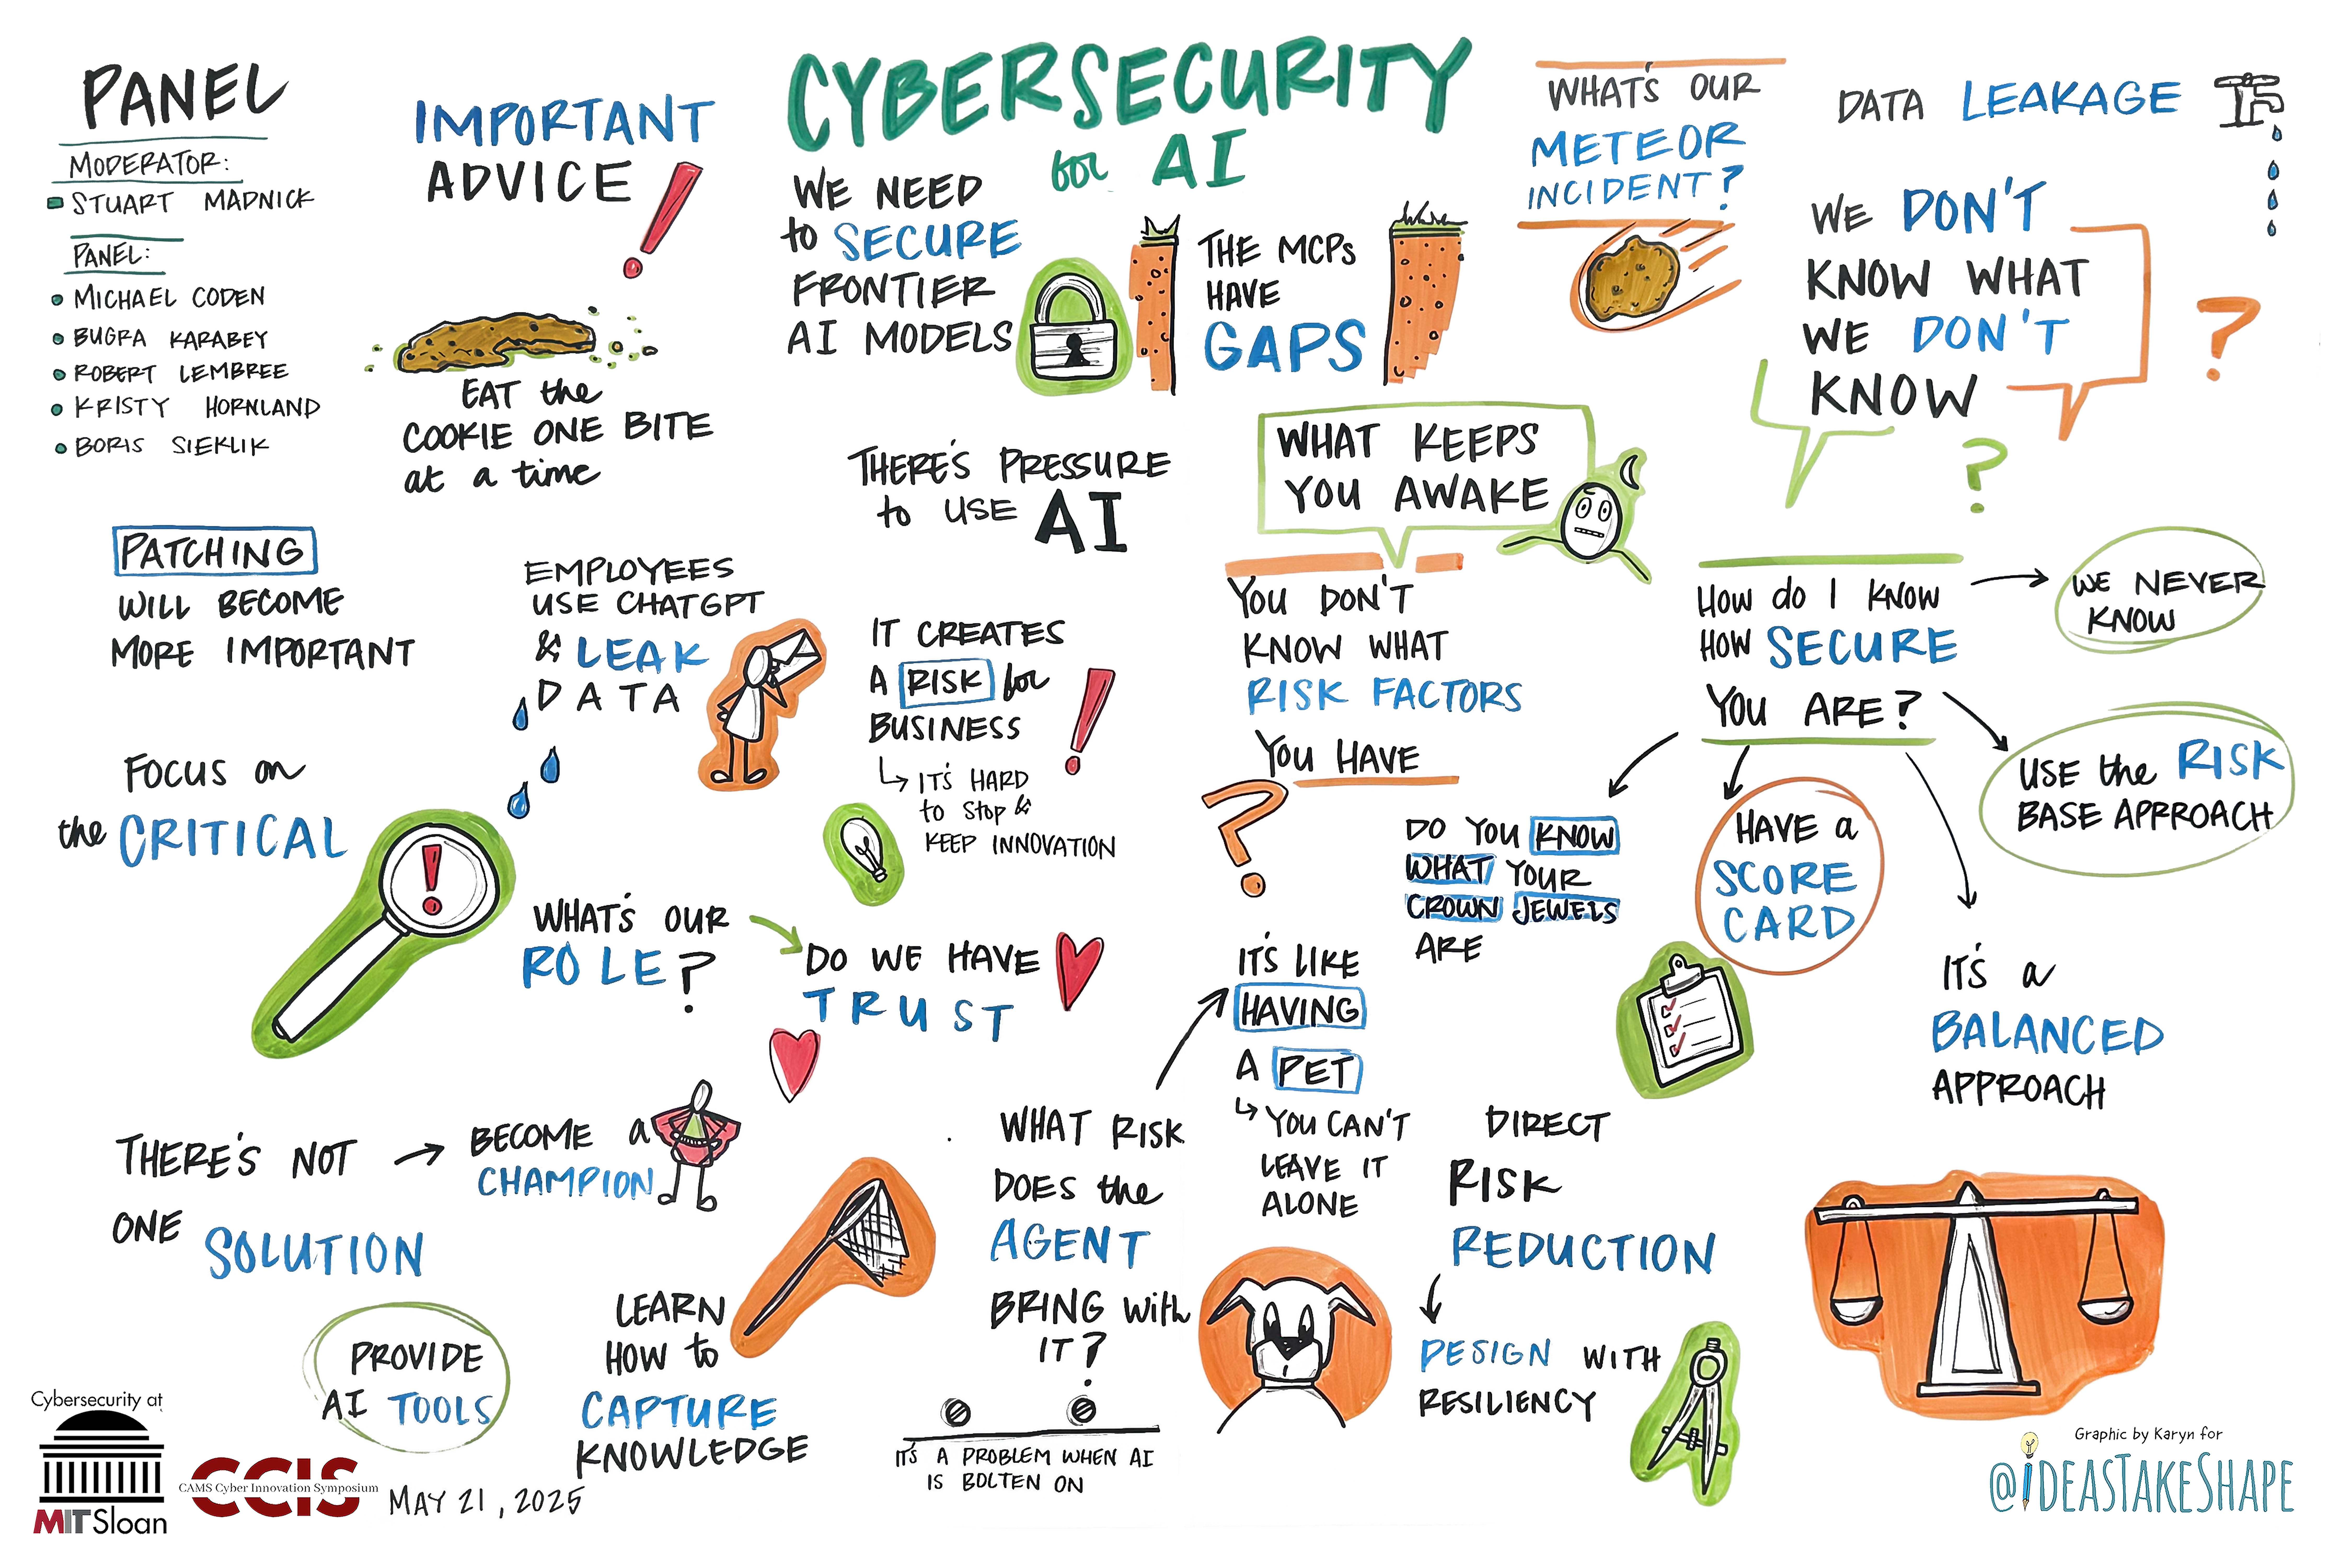 PANEL
MODERATOR:
STUART MADNICK
PANEL:
MICHAEL CODEN
BUGRA KARABEY
ROBERT LEMBREE
KRISTY HORNLAND
BORIS SIEKLIK
IMPORTANT
ADVICE
EAT the
COOKIE ONE BITE
at a time
CYBERSECURITY
for AI
WE NEED
to SECURE
FRONTIER
AI MODELS
THE MCPs
HAVE
GAPS
WHAT'S OUR
METEOR
INCIDENT?
DATA LEAKAGE
WE DON'T
KNOW WHAT
WE DON'T
KNOW
?
?
THERE'S PRESSURE
to USE AI
WHAT KEEPS
YOU AWAKE
PATCHING
WILL BECOME
MORE IMPORTANT
EMPLOYEES
USE CHATGPT
& LEAK
DATA
IT CREATES
A RISK for
BUSINESS
IT'S HARD
to STOP &
KEEP INNOVATION
YOU DON'T
KNOW WHAT
RISK FACTORS
YOU HAVE
?
HOW do I KNOW
HOW SECURE
YOU ARE?
WE NEVER
KNOW
USE the RISK
BASE APPROACH
DO YOU KNOW
WHAT YOUR
CROWN JEWELS
ARE
HAVE a
SCORE
CARD
IT'S a
BALANCED
APPROACH
FOCUS on
the CRITICAL
WHAT'S OUR
ROLE?
DO WE HAVE
TRUST
THERE'S NOT
ONE SOLUTION
BECOME a
CHAMPION
PROVIDE
AI TOOLS
LEARN
HOW to
CAPTURE
KNOWLEDGE
WHAT RISK
DOES the
AGENT
BRING with
IT?
IT'S A PROBLEM WHEN AI
IS BOLTEN ON
IT'S LIKE
HAVING
A PET
YOU CAN'T
LEAVE IT
ALONE
DIRECT
RISK
REDUCTION
DESIGN WITH
RESILIENCY
Cybersecurity at
MIT Sloan
CCIS
CAMS Cyber Innovation Symposium
MAY 21, 2025
Graphic by Karyn for
@IDEASTAKESHAPE